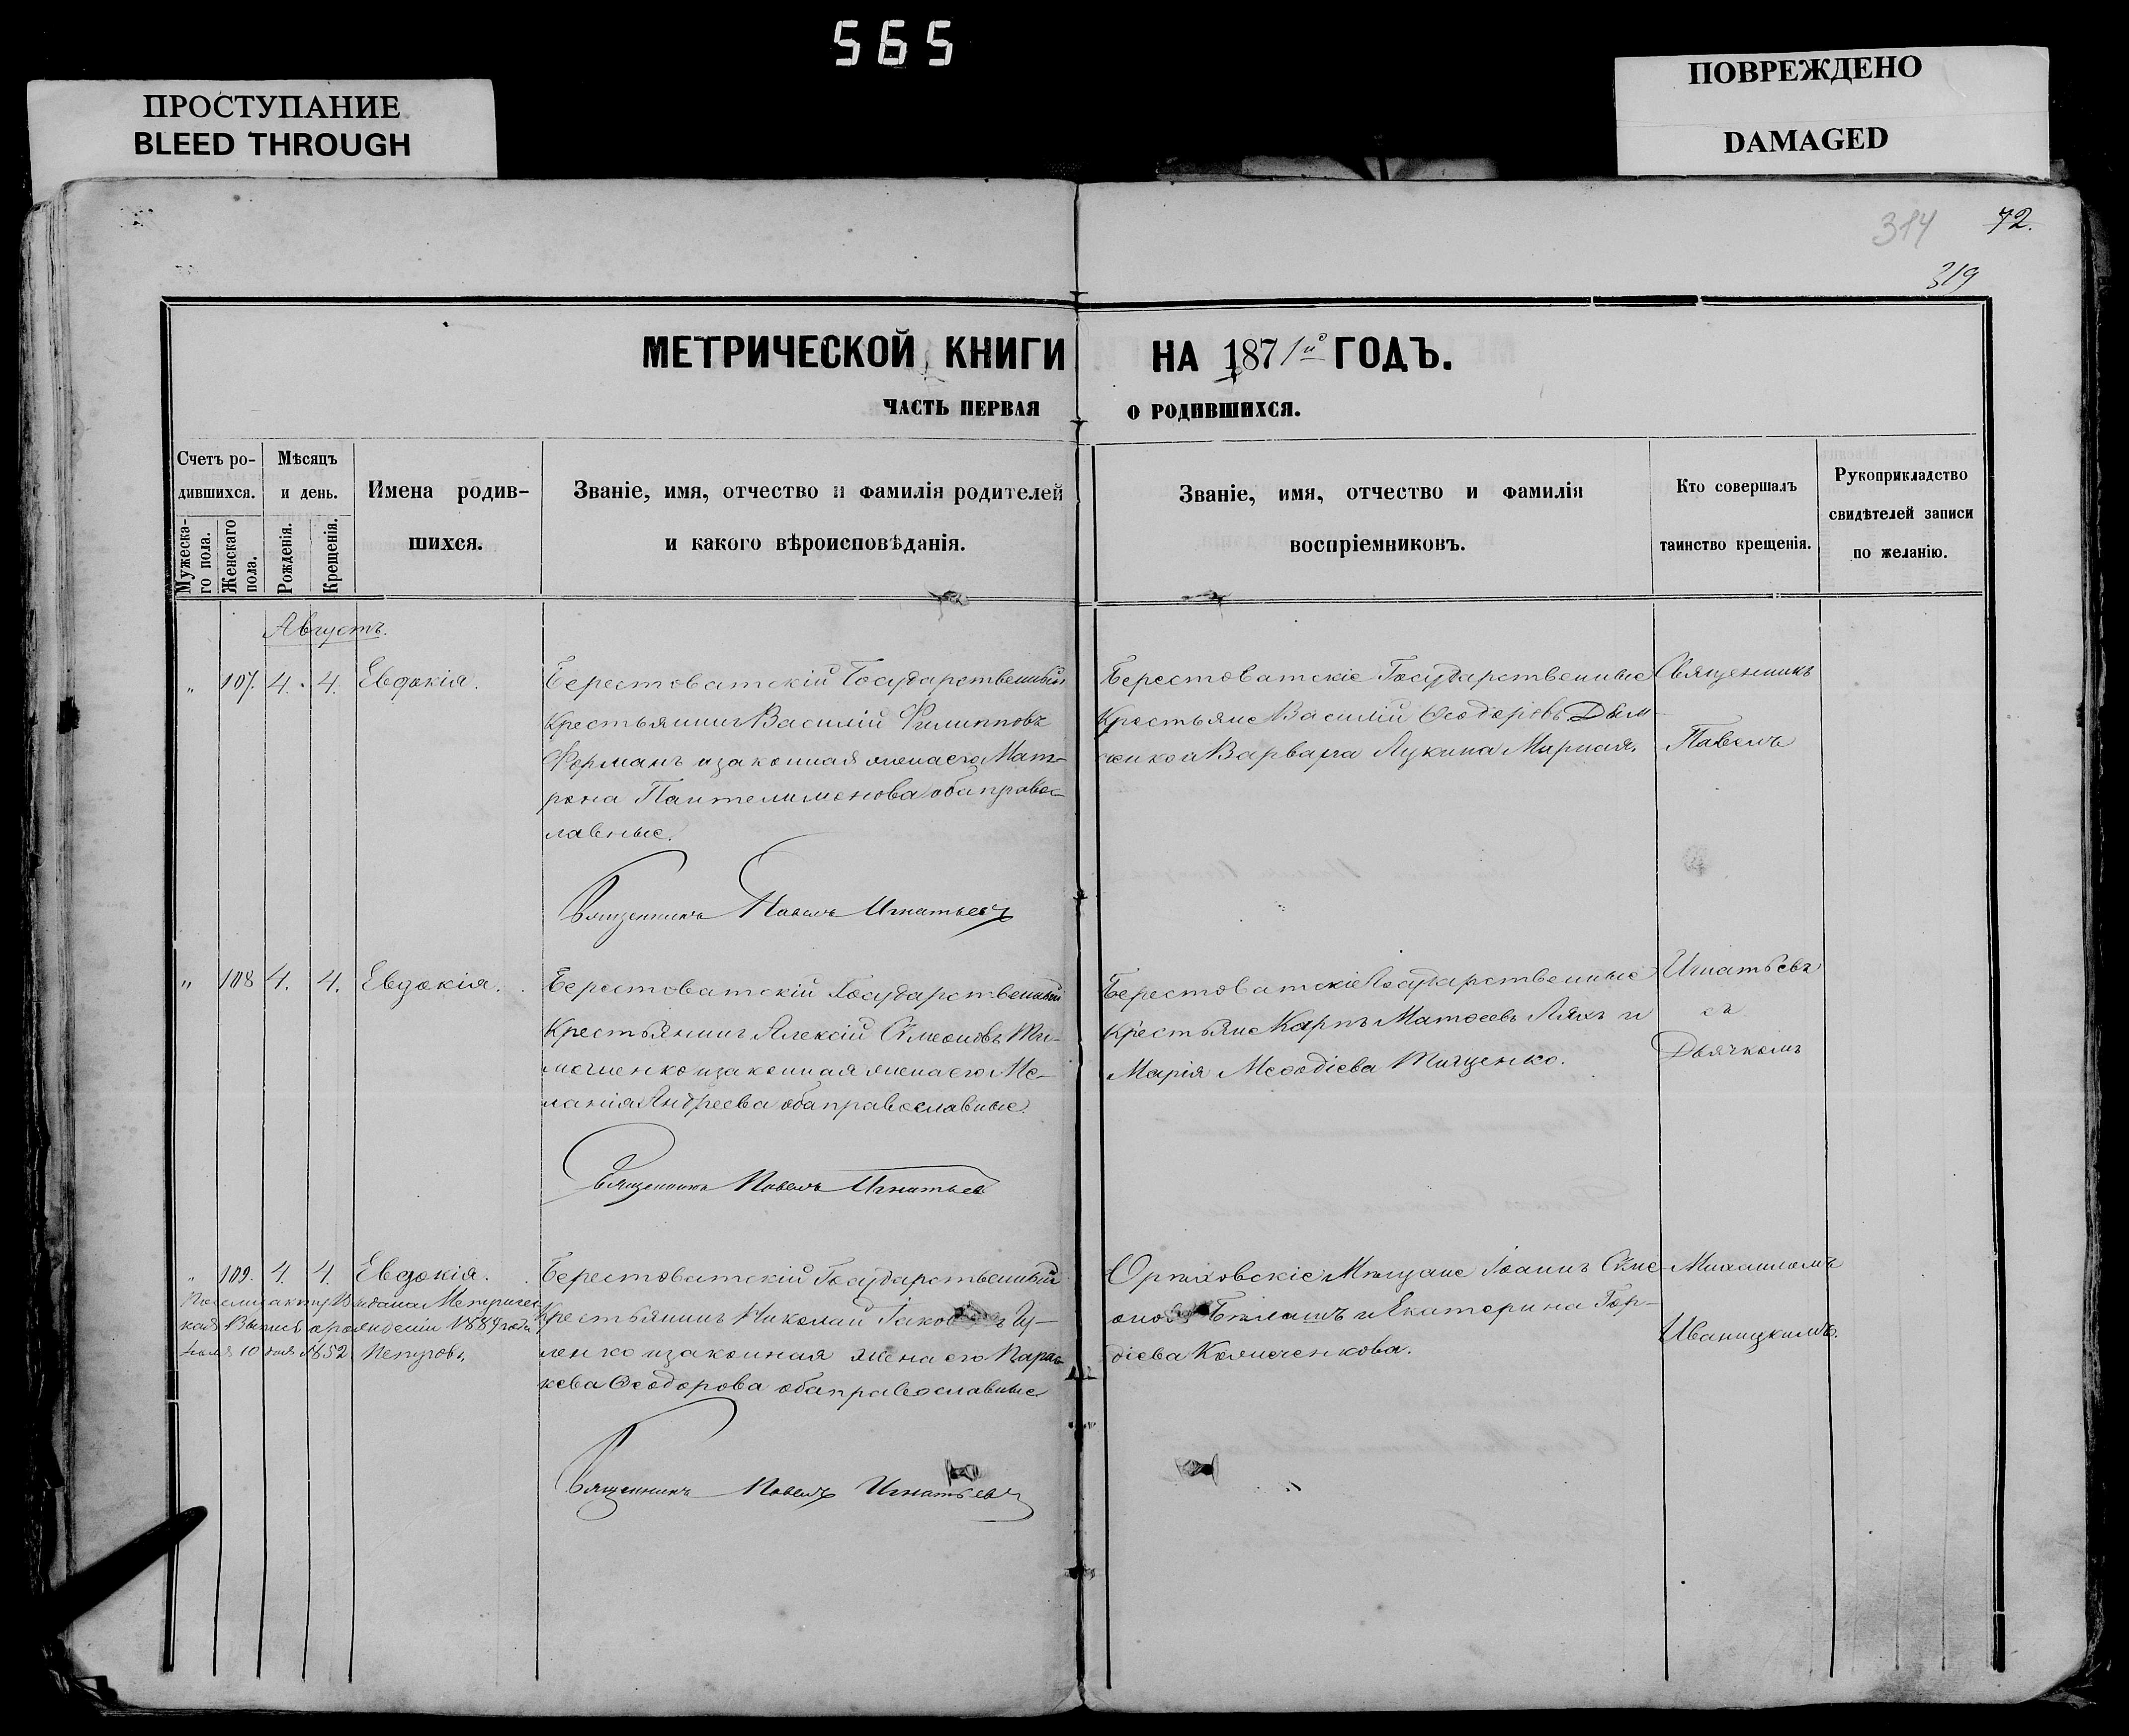 565
ПРОСТУПАНИЕ
BLEED THROUGH
ПОВРЕЖДЕНО
DAMAGED
314
72.
319
МЕТРИЧЕСКОЙ КНИГИ НА 1871й ГОДЪ.
ЧАСТЬ ПЕРВАЯ О РОДИВШИХСЯ.
Счетъ ро-
дившихся.
Мужеска-
го пола.
Женскаго
пола.
Мѣсяцъ
и день.
Рожденія.
Крещенія.
Имена родив-
шихся.
Званіе, имя, отчество и фамилія родителей
и какого вѣроисповѣданія.
Званіе, имя, отчество и фамилія
воспріемниковъ.
Кто совершалъ
таинство крещенія.
Рукоприкладство
свидѣтелей записи
по желанію.
Августъ.
" 107. 4. 4. Евдокія.
Берестоватскій Государственный
Крестьянинъ Василій Филипповъ
Форманъ и законная жена его Мат-
рона Пантелимонова оба правос-
лавные.
Священникъ Павелъ Игнатьевъ
Берестоватскіе Государственные
Крестьяне Василій Ѳеодоровъ Дым-
ченко и Варвара Лукина Мирная.
Священникъ
Павелъ
" 108 4. 4. Евдокія.
Берестоватскій Государственный
Крестьянинъ Алексій Сѵмеоновъ Ти-
мошенко и законная жена его Ме-
ланія Андреева оба православные.
Священникъ Павелъ Игнатьев
Берестоватскіе Государственные
Крестьяне Карпъ Матѳеевъ Ляхъ и
Марія Меѳодіева Тищенко.
Игнатьевъ
съ
Дьячкомъ
" 109. 4. 4. Евдокія.
По сему акту Выдана Метричес-
кая Выпись о рожденіи 1889 года
Іюля 10 дня №52.
Берестоватскій Государственный
Крестьянинъ Николай Іаковлевъ
и законная жена его Парас-
кева Ѳеодорова оба православные
Священникъ Павелъ Игнатьевъ
Орѣховскіе Мѣщане Іоаннъ Сѵме-
оновъ Бѣлашъ и Екатерина Гор-
діева
Михаиломъ
Иваницкимъ.